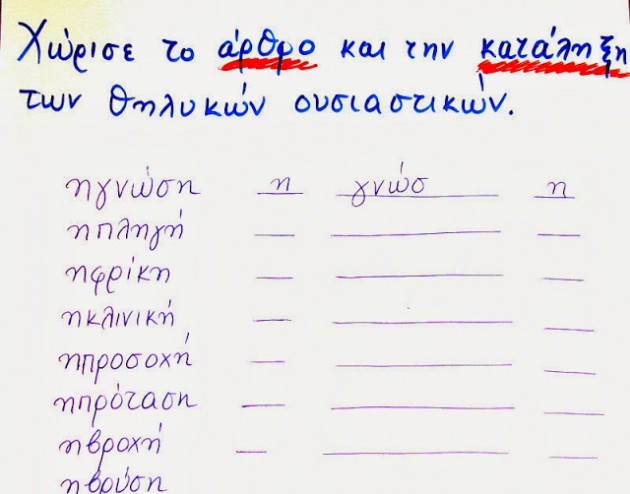 Χώρισε το άρθρο και την κατάληξη
των θηλυκών ουσιαστικών.
ηγνώση η γνώσ η
ηπληγή
ηφρίκη
ηκλινική
ηπροσοχή
ηπρόταση
ηβροχή
ηβρύση